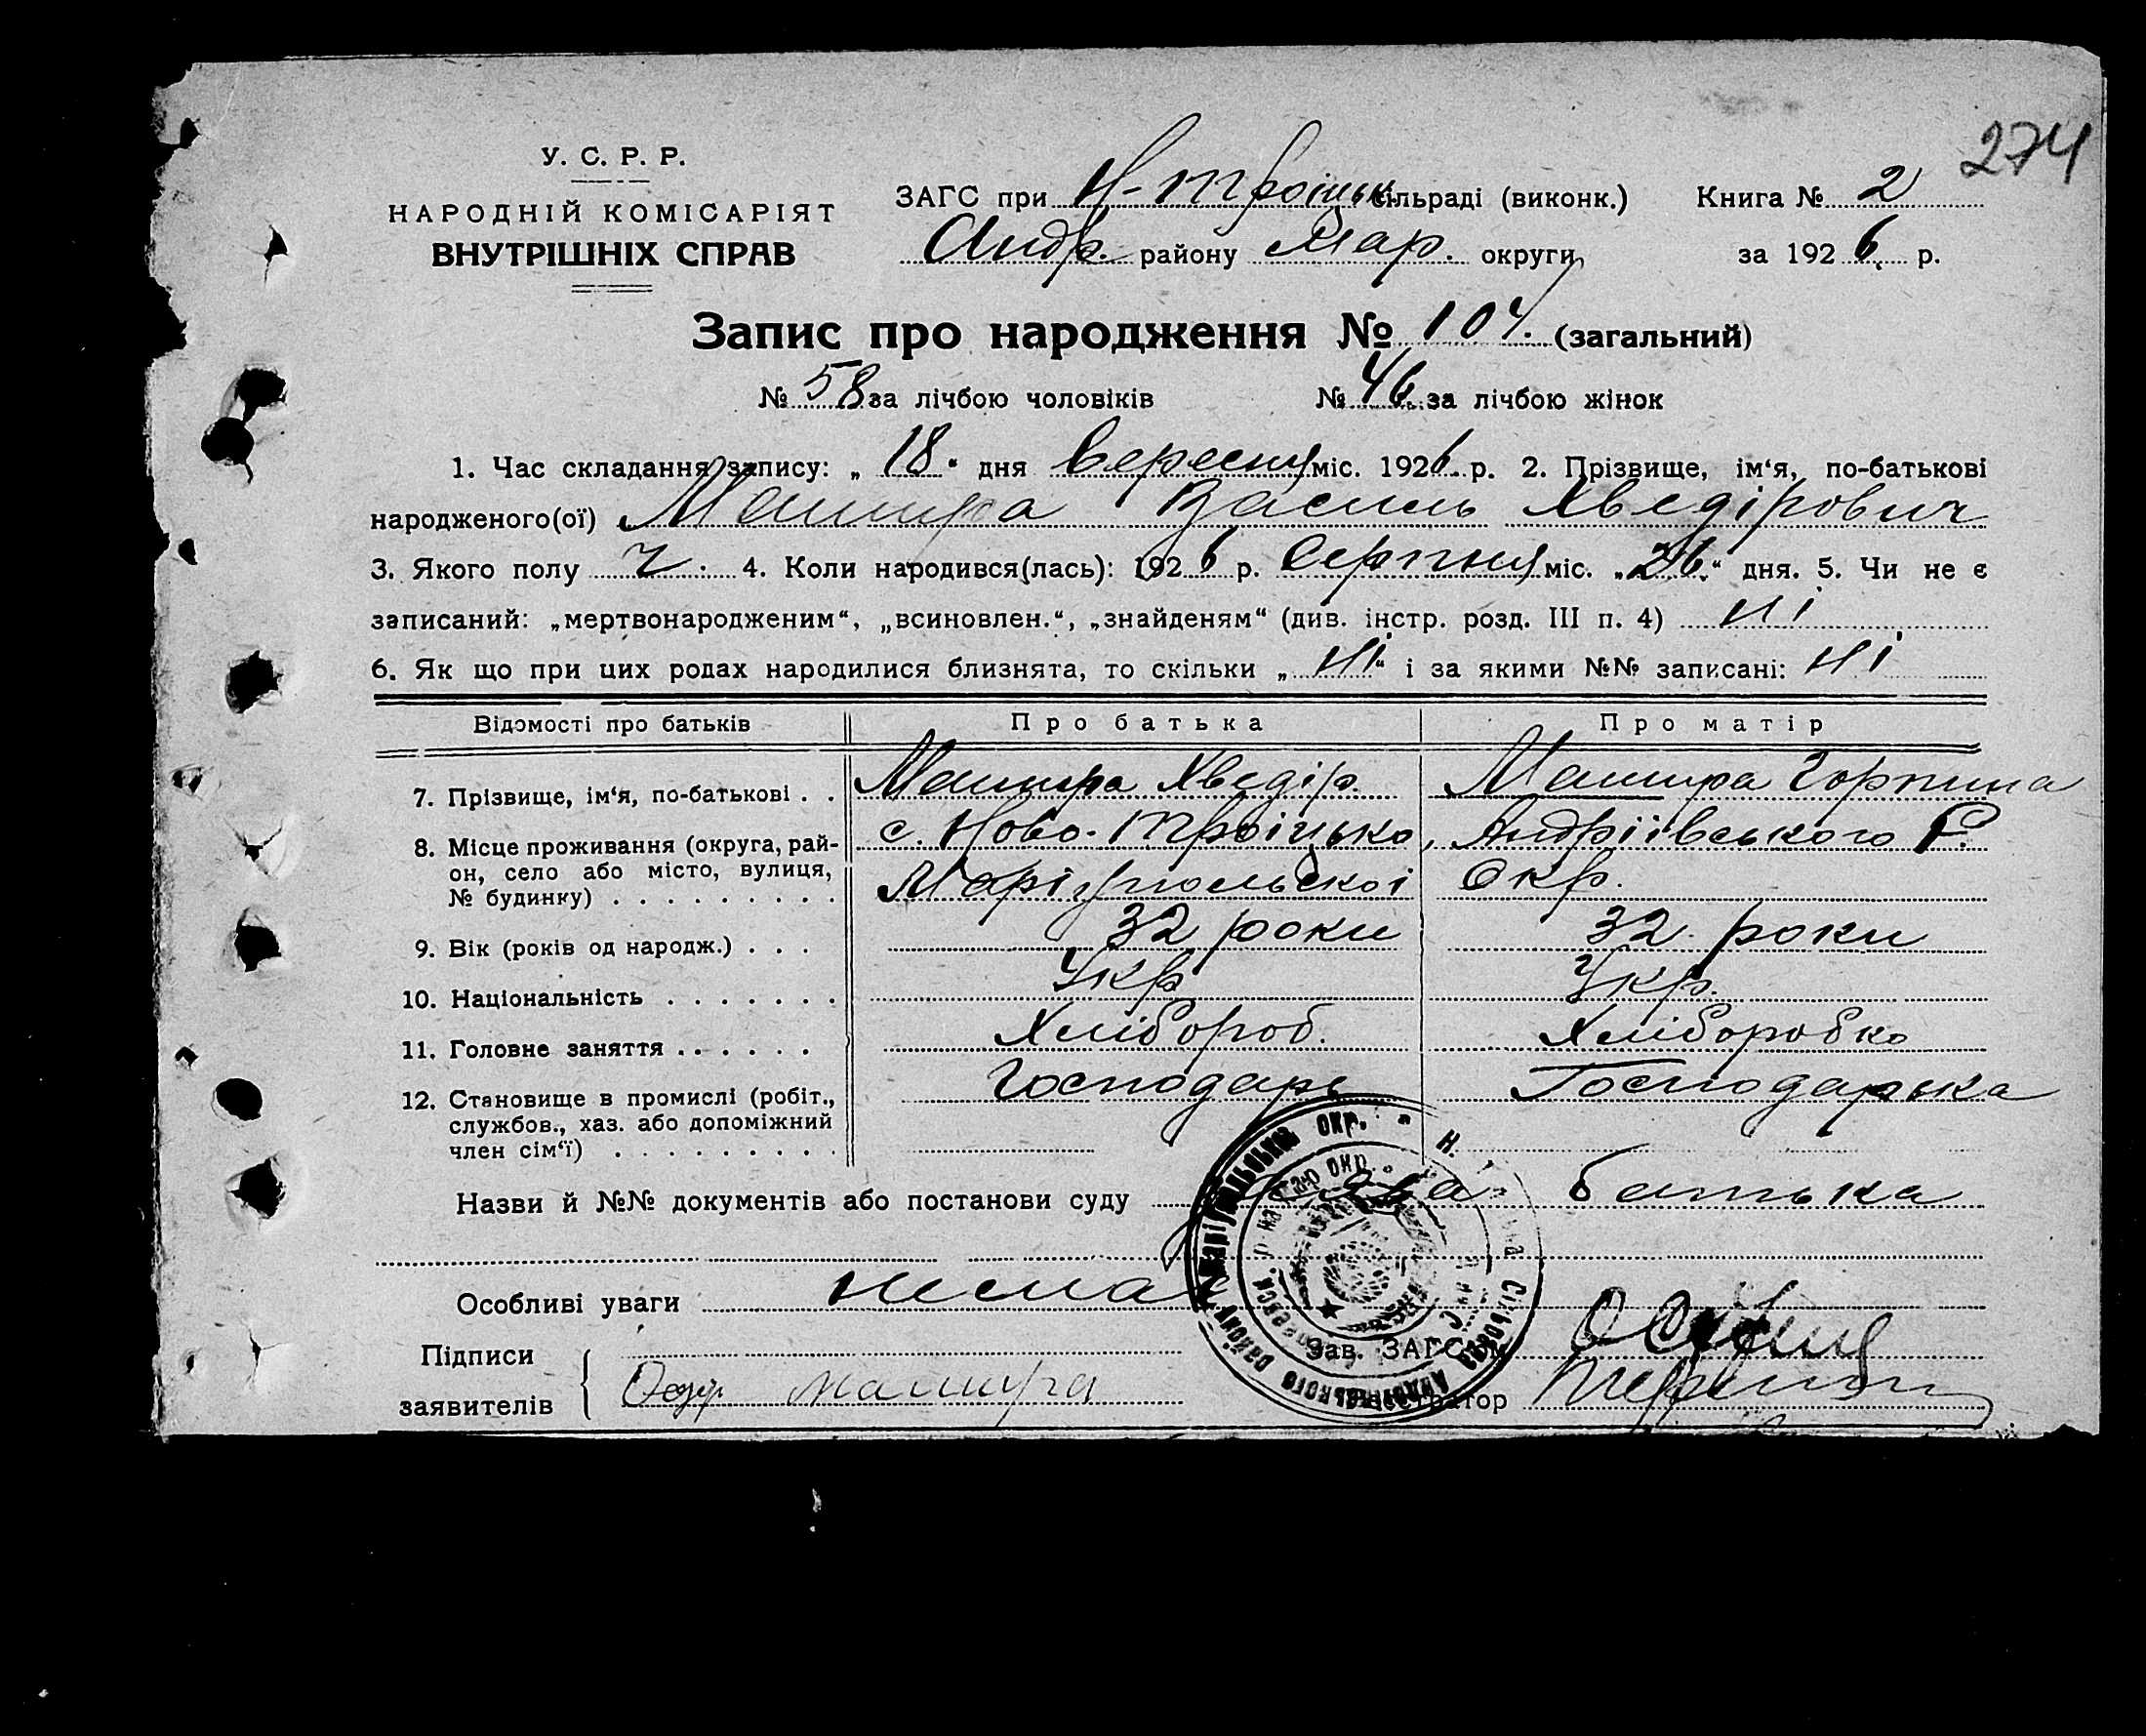 274
У. С. Р. Р.
НАРОДНІЙ КОМІСАРІЯТ
ВНУТРІШНІХ СПРАВ
ЗАГС при Н-Троіцьк. сільраді (виконк.) Книга № 2
Андр. району Мар. округи, за 1926 р.
Запис про народження № 104. (загальний)
№ 58 за лічбою чоловіків № 46 за лічбою жінок
1. Час складання запису: „18" дня вересня міс. 1926 р. 2. Прізвище, ім'я, по-батькові
народженого(ої) Машира Василь Хведірович
3. Якого полу ч. 4. Коли народився(лась): 1926 р. Серпня міс. „26" дня. 5. Чи не є
записаний: „мертвонародженим", „всиновлен.", „знайденям" (див. інстр. розд. III п. 4) ні
6. Як що при цих родах народилися близнята, то скільки „ні" і за якими №№ записані: ні
Відомості про батьків Про батька Про матір
7. Прізвище, ім'я, по-батькові . . Машира Хведір. Машира Горпина
8. Місце проживання (округа, рай- с. Ново-Троіцько, Андріівського Р.
он, село або місто, вулиця,
№ будинку) . . . . . . . . . Маріупольськоі Окр.
9. Вік (років од народж.) . . . 32 роки 32 роки
10. Національність . . . . . . . Укр Укр.
11. Головне заняття . . . . . . Хлібороб. Хлібо­робка
12. Становище в промислі (робіт., Господарь Господарька
службов., хаз. або допоміжний
член сім'ї) . . . . . . . . .
Назви й №№ документів або постанови суду батька
Особливі уваги нема
Підписи
заявителів Машира
Зав. ЗАГСом